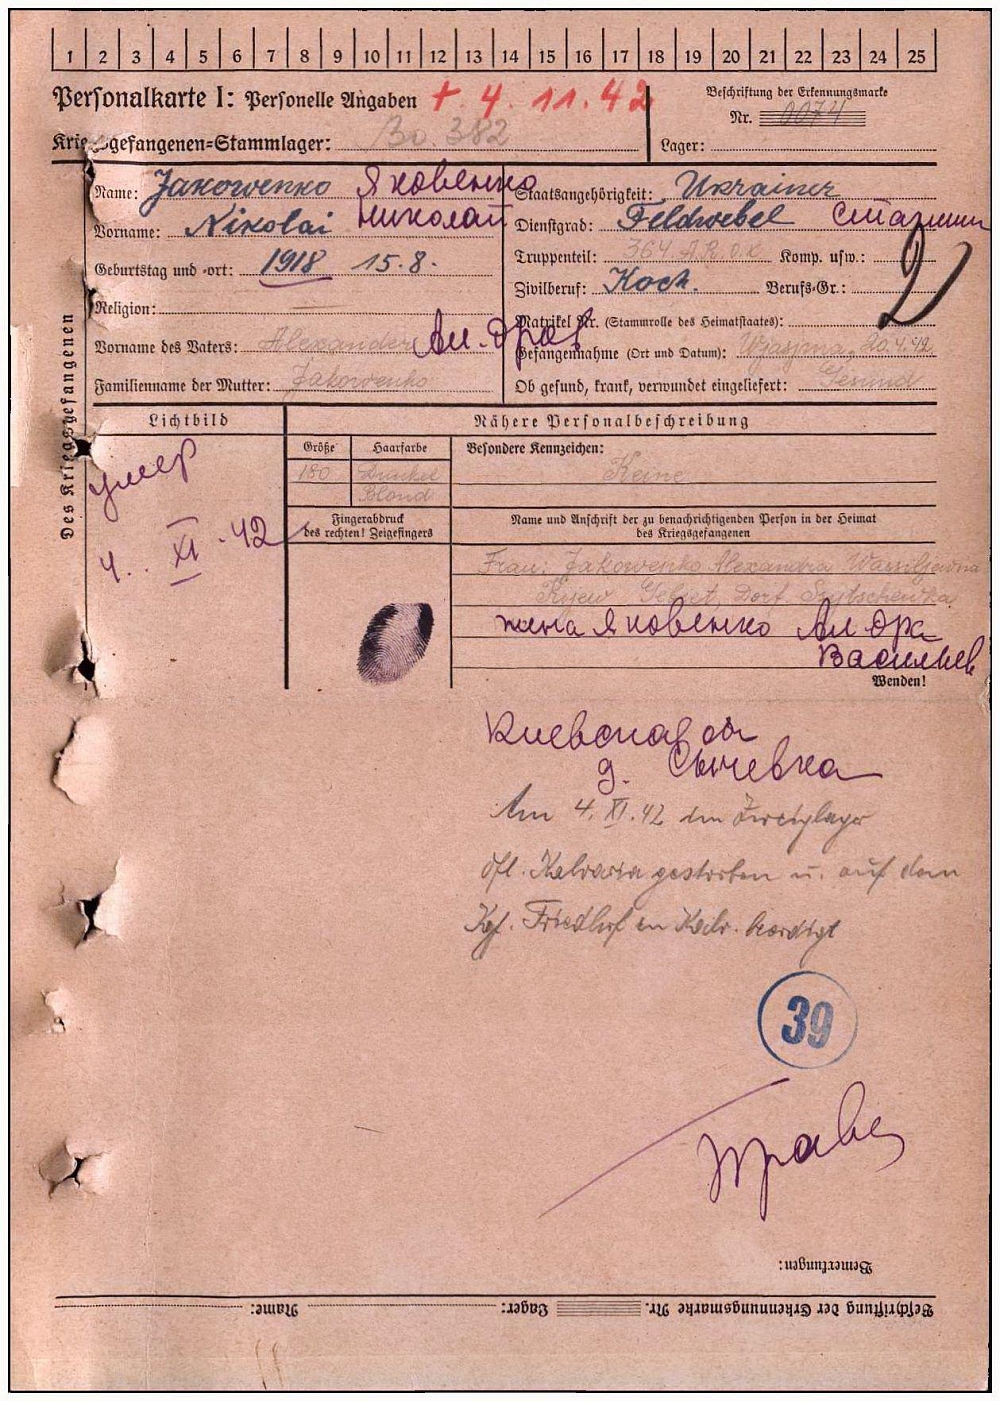 1 2 3 4 5 6 7 8 9 10 11 12 13 14 15 16 17 18 19 20 21 22 23 24 25
Personalkarte I: Personelle Angaben + 4. 11. 42
Beschriftung der Erkennungsmarke
Nr. 0074
Kriegsgefangenen-Stammlager: Bo. 382 Lager:
Des Kriegsgefangenen
Name: Jakowenko Яковенко
Vorname: Nikolai Николай
Geburtstag und -ort: 1918 15.8.
Religion:
Vorname des Vaters: Alexander Ал-др
Familienname der Mutter: Jakowenko
Staatsangehörigkeit: Ukrainer
Dienstgrad: Feldwebel Старшин
Truppenteil: 364. A.R. Komp. usw.: 2
Zivilberuf: Koch. Berufs-Gr.:
Matrikel Nr. (Stammrolle des Heimatstaates):
Gefangennahme (Ort und Datum): Wjasma, 20.4.42
Ob gesund, krank, verwundet eingeliefert: Gesund
Lichtbild
умер
4. XI. 42
Nähere Personalbeschreibung
Größe Haarfarbe Besondere Kennzeichen:
180 Dunkel Blond Keine
Fingerabdruck
des rechten! Zeigefingers
Name und Anschrift der zu benachrichtigenden Person in der Heimat
des Kriegsgefangenen
Frau: Jakowenko Alexandra Wassiljewna
Kijew Gebiet, Dorf. Sytschewka
жена Яковенко Ал-дра
Васильев
Wenden!
Киевская об
д. Сычевка
Am 4. XI. 42 im Zweiglager
Ofl. Kalvaria gestorben u. auf dem
Kgf. Friedhof in Kalv. beerdigt
39
Bemerkungen:
Beschriftung der Erkennungsmarke Nr. Lager: Name: